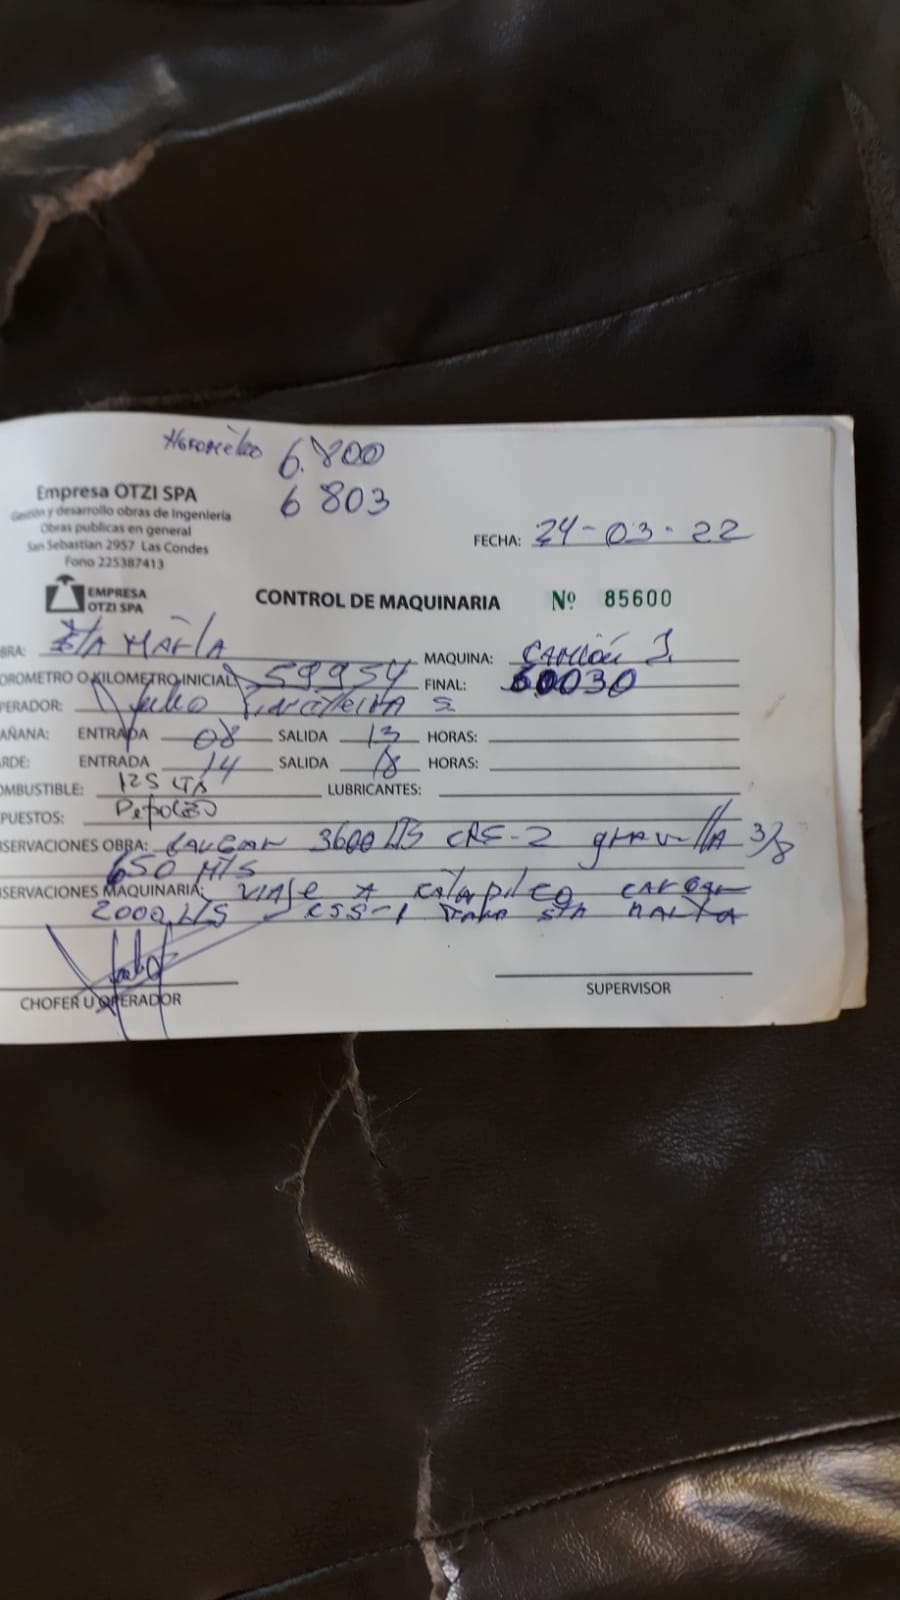 Horometro 6.800
6 803
Empresa OTZI SPA
Gestión y desarrollo obras de Ingeniería
Obras publicas en general
San Sebastian 2957 Las Condes
Fono 225387413
FECHA: 24-03-22
EMPRESA
OTZI SPA
CONTROL DE MAQUINARIA Nº 85600
BRA: Sta María MAQUINA: Camión I.
OROMETRO O KILOMETRO INICIAL: 59954 FINAL: 60030
PERADOR: Julio S
AÑANA: ENTRADA 08 SALIDA 13 HORAS:
RDE: ENTRADA 14 SALIDA 18 HORAS:
OMBUSTIBLE: 125 LTS LUBRICANTES:
PUESTOS:
SERVACIONES OBRA: 3600 LTS CRS-2 gravilla 3/8
650 MTS
SERVACIONES MAQUINARIA: VIAJE A cargar
2000 LTS CSS-1 PARA STA MARIA
CHOFER U OPERADOR
SUPERVISOR